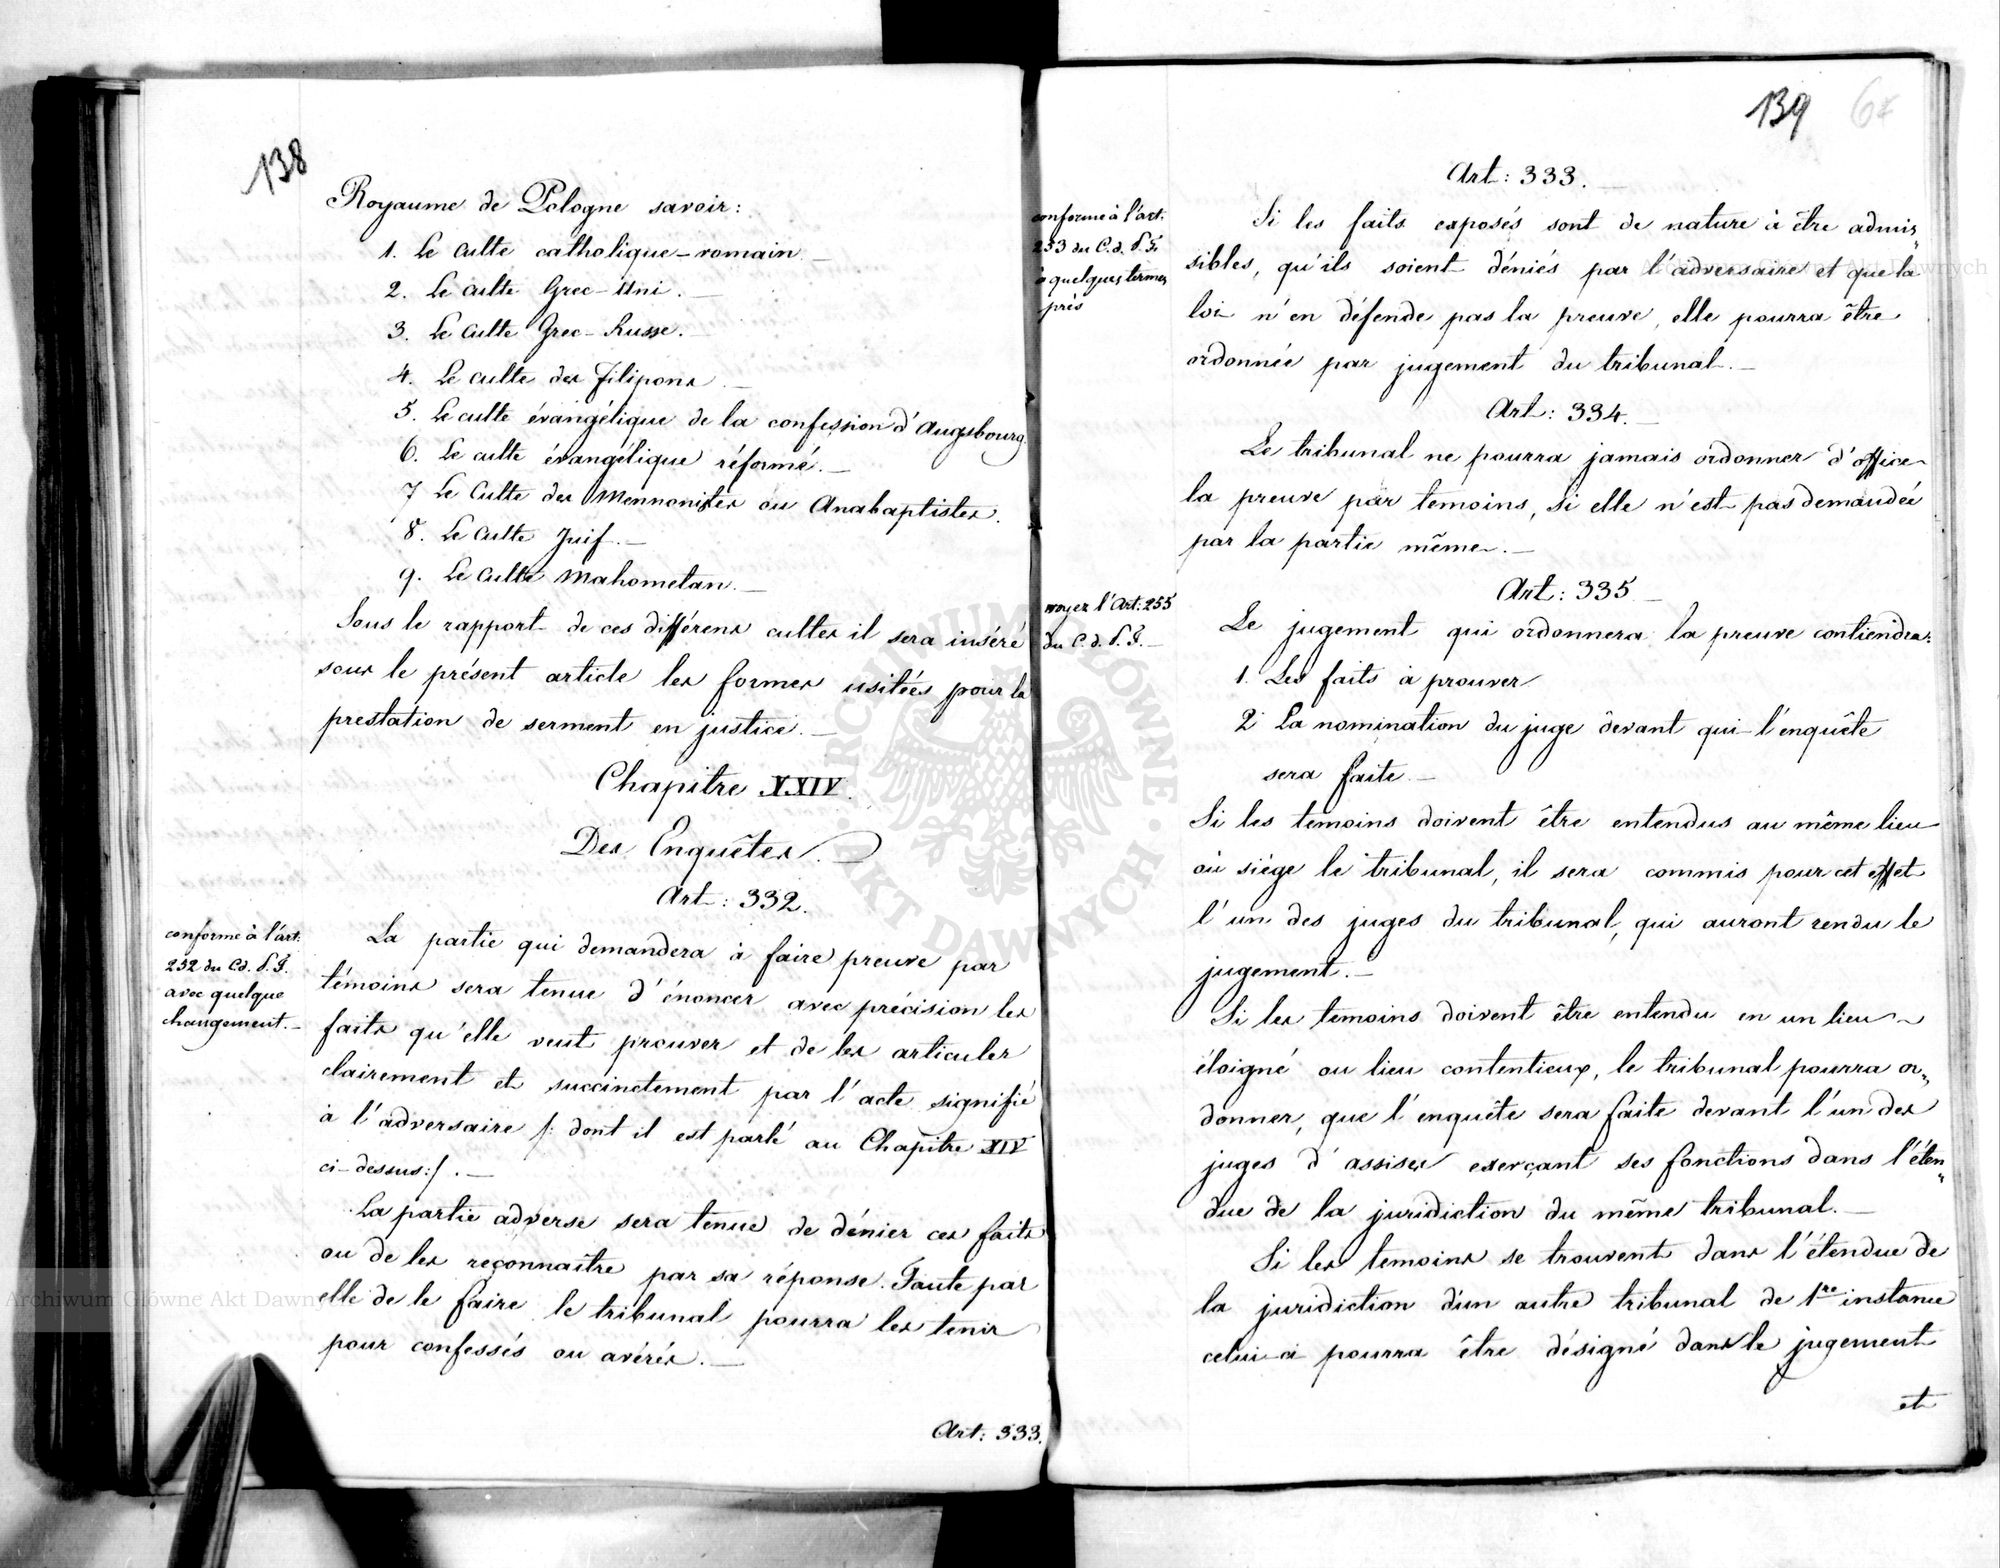 138
Royaume de Pologne savoir:
1. Le Culte catholique-romain. —
2. Le culte Grec-Uni. —
3. Le Culte Grec-Russe. —
4. Le culte des Filipons. —
5. Le culte évangélique de la confession d'Augsbourg.
6. Le culte évangélique réformé. —
7 Le Culte des Mennonistes ou Anabaptistes.
8. Le Culte Juif. —
9. Le Culte Mahometan. —
Sous le rapport de ces différens cultes il sera inséré
sous le présent article les formes usitées pour la
prestation de serment en justice. —
Chapitre XXIV.
Des Enquêtes. —
Art: 332.
conforme à l'art:
252 du C.d. P. F.
avec quelque
changement. —
La partie qui demandera à faire preuve par
témoins sera tenue d'énoncer avec précision les
faits qu'elle veut prouver et de les articuler
clairement et succinctement par l'acte signifié
à l'adversaire /: dont il est parlé au Chapitre XIV
ci-dessus:/. —
La partie adverse sera tenue de dénier ces faits
ou de les reconnaître par sa réponse. Faute par
elle de le faire le tribunal pourra les tenir
pour confessés ou avérés. —
Art: 333.
139
Art: 333. —
conforme à l'art:
253 du C.d. P. F.
à quelques termes
près
Si les faits exposés sont de nature à être admis„
sibles, qu'ils soient déniés par l'adversaire et que la
loi n'en défende pas la preuve, elle pourra être
ordonnée par jugement du tribunal. —
Art: 334. —
Le tribunal ne pourra jamais ordonner d'office
la preuve par temoins, si elle n'est pas demandée
par la partie même. —
Art: 335 —
voyez l'Art: 255
du C. d. P. F. —
Le jugement qui ordonnera la preuve contiendra:
1. Les faits à prouver
2 La nomination du juge devant qui l'enquête
sera faite. —
Si les temoins doivent être entendus au même lieu
où siége le tribunal, il sera commis pour cet effet
l'un des juges du tribunal, qui auront rendu le
jugement. —
Si les temoins doivent être entendu en un lieu
éloigné ou lieu contentieux, le tribunal pourra or„
donner, que l'enquête sera faite devant l'un des
juges d'assises exerçant ses fonctions dans l'éten„
due de la juridiction du même tribunal. —
Si les temoins se trouvent dans l'étendue de
la juridiction d'un autre tribunal de 1re instance
celui-ci pourra être désigné dans le jugement
et
ARCHIWUM GŁÓWNE · AKT DAWNYCH ·
Archiwum Główne Akt Dawnych
Archiwum Główne Akt Dawnych